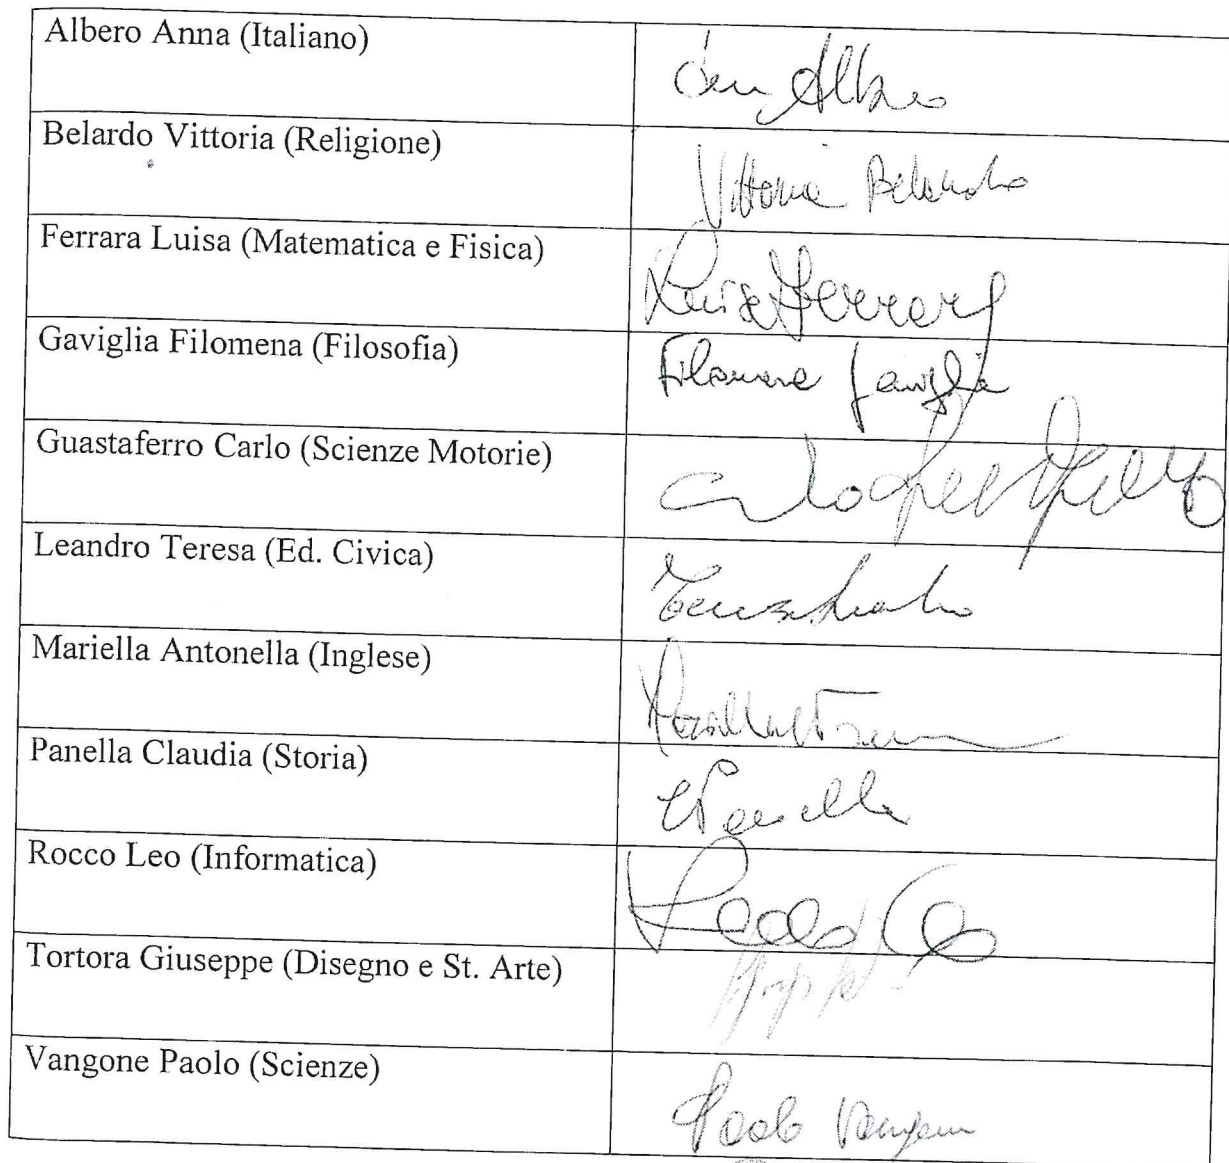 Albero Anna (Italiano)
Albero
Belardo Vittoria (Religione)
Vittoria Belardo
Ferrara Luisa (Matematica e Fisica)
Luisa Ferrara
Gaviglia Filomena (Filosofia)
Filomena Gaviglia
Guastaferro Carlo (Scienze Motorie)
Carlo
Leandro Teresa (Ed. Civica)
Mariella Antonella (Inglese)
Panella Claudia (Storia)
CPanella
Rocco Leo (Informatica)
Rocco Leo
Tortora Giuseppe (Disegno e St. Arte)
Vangone Paolo (Scienze)
Paolo Vangone